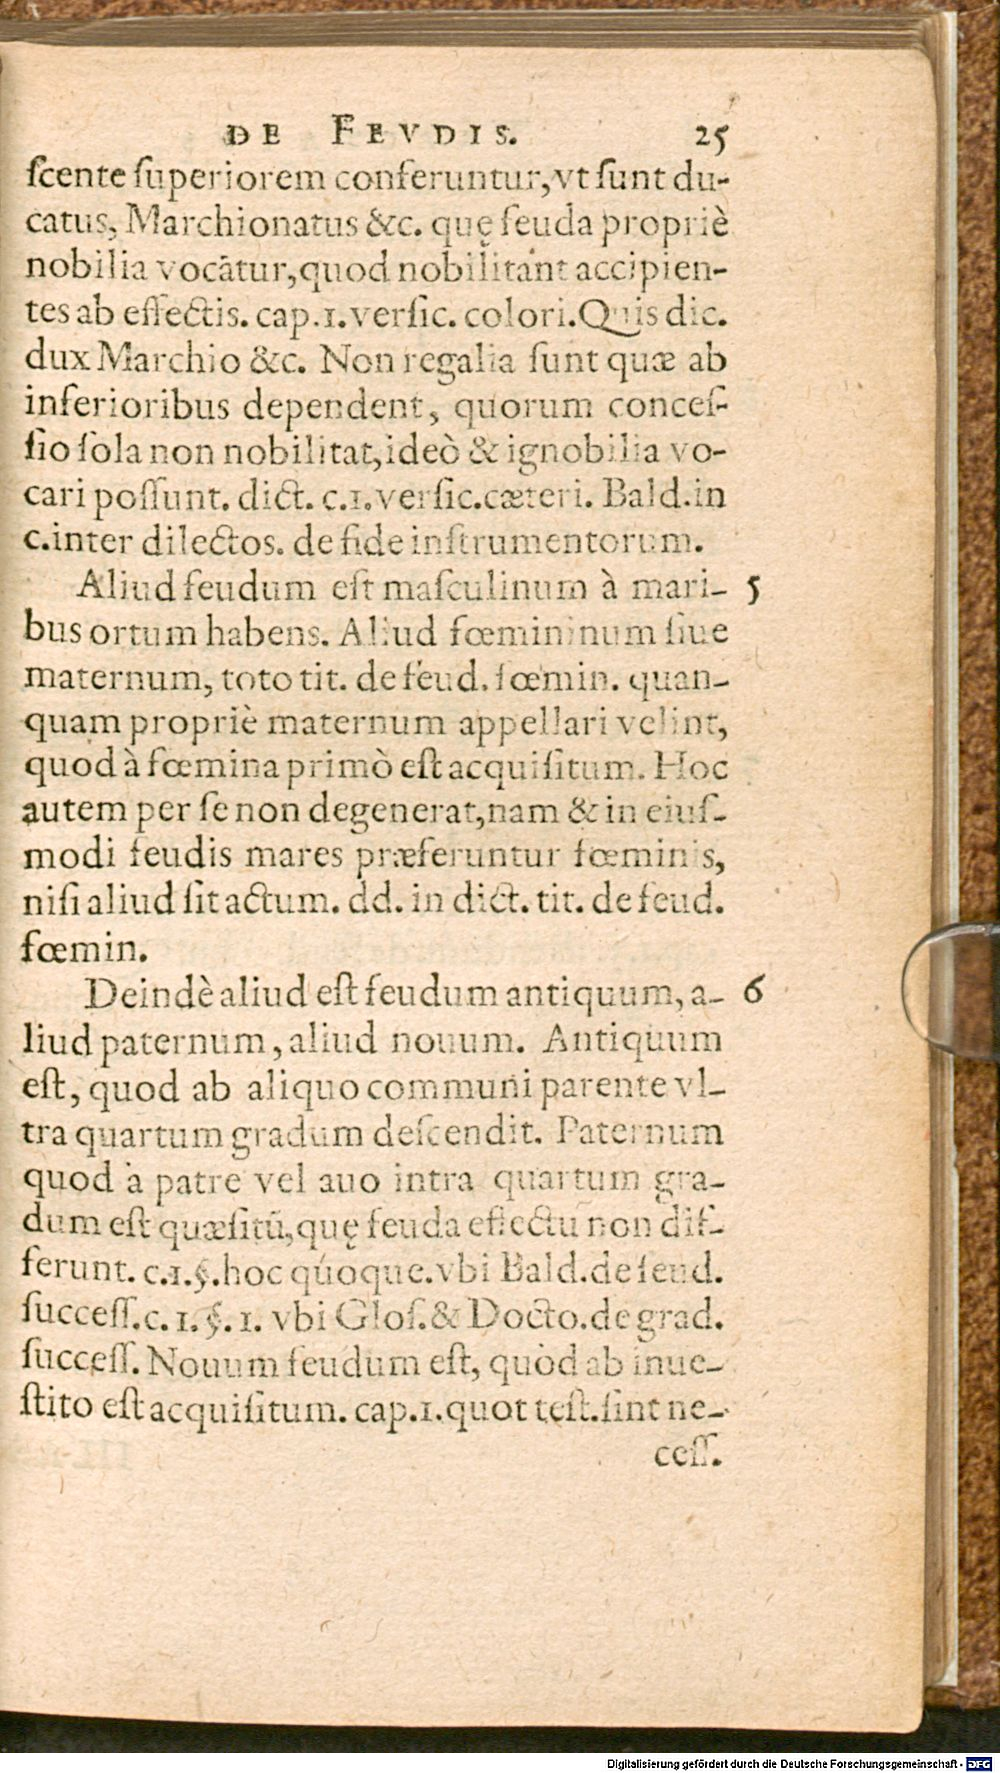 DE FEVDIS. 25
ſcente ſuperiorem conferuntur,vt ſunt du-
catus, Marchionatus &c. quę feuda propriè
nobilia vocātur,quod nobilitant accipien-
tes ab effectis. cap.1.verſic. colori.Quis dic.
dux Marchio &c. Non regalia ſunt quæ ab
inferioribus dependent, quorum conceſ-
ſio ſola non nobilitat,ideò & ignobilia vo-
cari poſſunt. dict. c.1.verſic.cæteri. Bald.in
c.inter dilectos. de fide inſtrumentorum.
Aliud feudum eſt maſculinum à mari- 5
bus ortum habens. Aliud fœmininum ſiue
maternum, toto tit. de feud. fœmin. quan-
quam propriè maternum appellari velint,
quod à fœmina primò eſt acquiſitum. Hoc
autem per ſe non degenerat,nam & in eiuſ-
modi feudis mares præferuntur fœminis,
niſi aliud ſit actum. dd. in dict. tit. de feud.
fœmin.
Deindè aliud eſt feudum antiquum, a- 6
liud paternum, aliud nouum. Antiquum
eſt, quod ab aliquo communi parente vl-
tra quartum gradum deſcendit. Paternum
quod à patre vel auo intra quartum gra-
dum eſt quæſitū,quę feuda effectu non dif-
ferunt. c.1.§.hoc quoque.vbi Bald.de feud.
ſucceſſ.c. 1. §. 1. vbi Gloſ.& Docto.de grad.
ſucceſſ. Nouum feudum eſt, quod ab inue-
ſtito eſt acquiſitum. cap.1.quot teſt.ſint ne-
ceſſ.
Digitalisierung gefördert durch die Deutsche Forschungsgemeinschaft - DFG